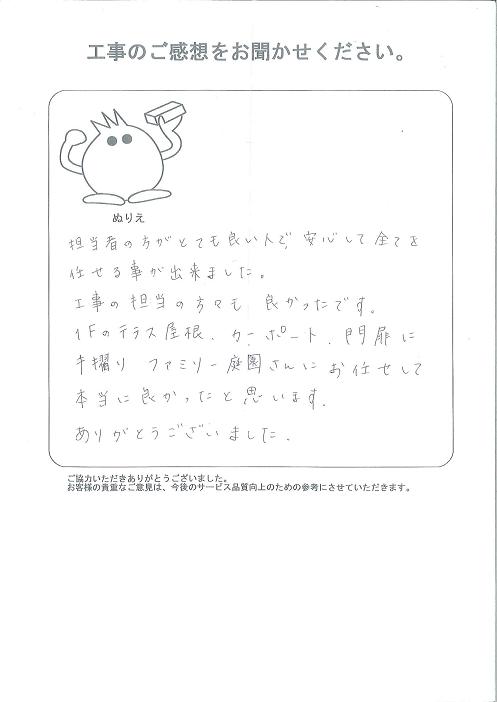 工事のご感想をお聞かせください。
ぬりえ
担当者の方がとても良い人で、安心して全てを
任せる事が出来ました。
工事の担当の方々も 良かったです。
1Fのテラス屋根、カーポート、門扉に
手摺り ファミリー庭園さんにお任せして
本当に良かったと思います。
ありがとうございました。
ご協力いただきありがとうございました。
お客様の貴重なご意見は、今後のサービス品質向上のための参考にさせていただきます。